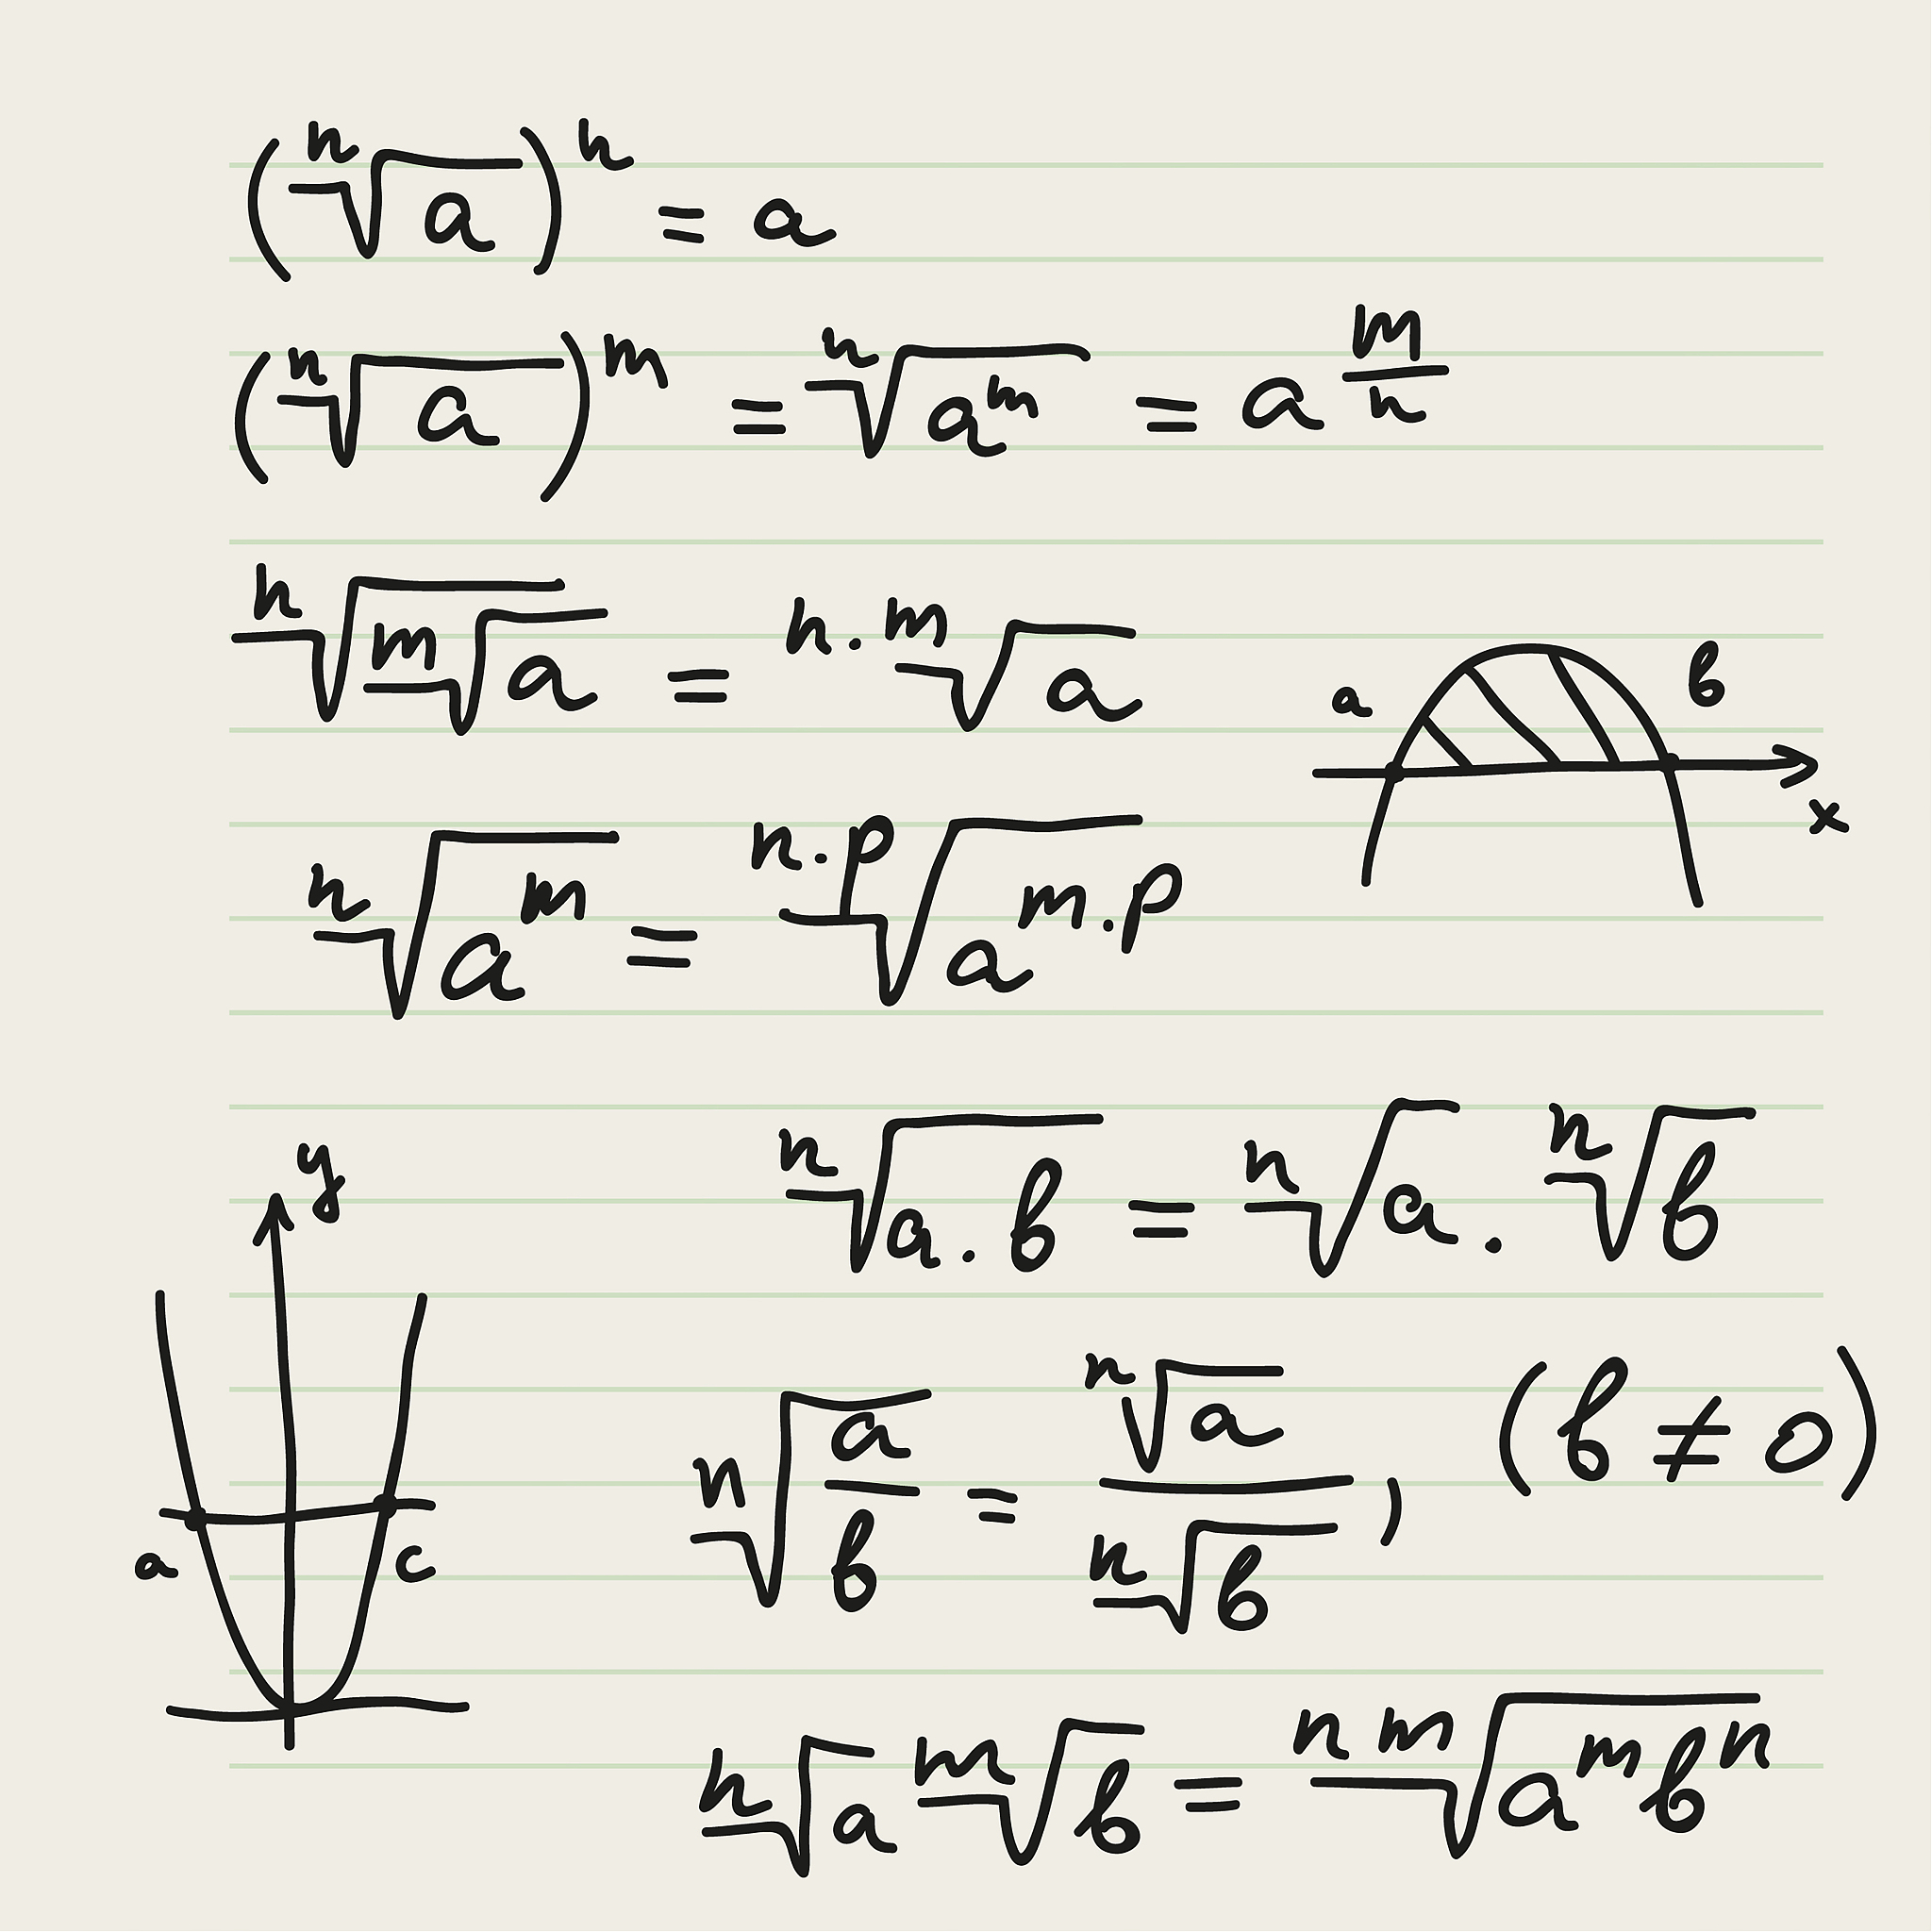 (ⁿ√a)ⁿ = a
(ⁿ√a)ᵐ = ⁿ√(aᵐ) = a^(m/n)
ⁿ√(ᵐ√a) = ⁿ·ᵐ√a
a b
x
ⁿ√(aᵐ) = ⁿ·ᵖ√(aᵐ·ᵖ)
y
ⁿ√(a.b) = ⁿ√a . ⁿ√b
ⁿ√(a/b) = ⁿ√a / ⁿ√b , (b ≠ 0)
a c
ⁿ√a ᵐ√b = ⁿᵐ√(aᵐbⁿ)